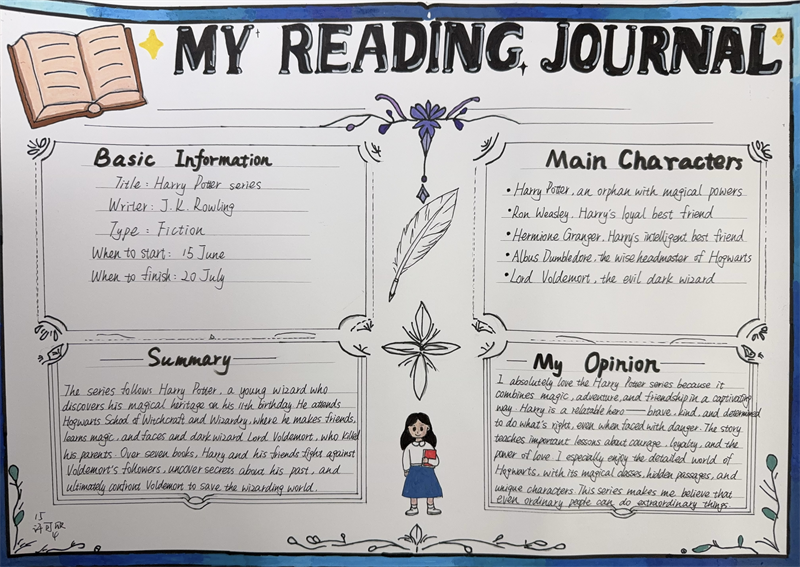 MY READING JOURNAL
Basic Information
Title: Harry Potter series
Writer: J. K. Rowling
Type: Fiction
When to start: 15 June
When to finish: 20 July
Main Characters
• Harry Potter, an orphan with magical powers
• Ron Weasley, Harry's loyal best friend
• Hermione Granger, Harry's intelligent best friend
• Albus Dumbledore, the wise headmaster of Hogwarts
• Lord Voldemort, the evil dark wizard
Summary
The series follows Harry Potter, a young wizard who
discovers his magical heritage on his 11th birthday. He attends
Hogwarts School of Witchcraft and Wizardry, where he makes friends,
learns magic, and faces and dark wizard Lord Voldemort, who killed
his parents. Over seven books, Harry and his friends fight against
Voldemort's followers, uncover secrets about his past, and
ultimately confront Voldemort to save the wizarding world.
My Opinion
I absolutely love the Harry Potter series because it
combines magic, adventure, and friendship in a captivating
way. Harry is a relatable hero — brave, kind, and determined
to do what's right, even when faced with danger. The story
teaches important lessons about courage, loyalty, and the
power of love. I especially enjoy the detailed world of
Hogwarts, with its magical classes, hidden passages, and
unique characters. This series makes me believe that
even ordinary people can do extraordinary things.
15
许可欣